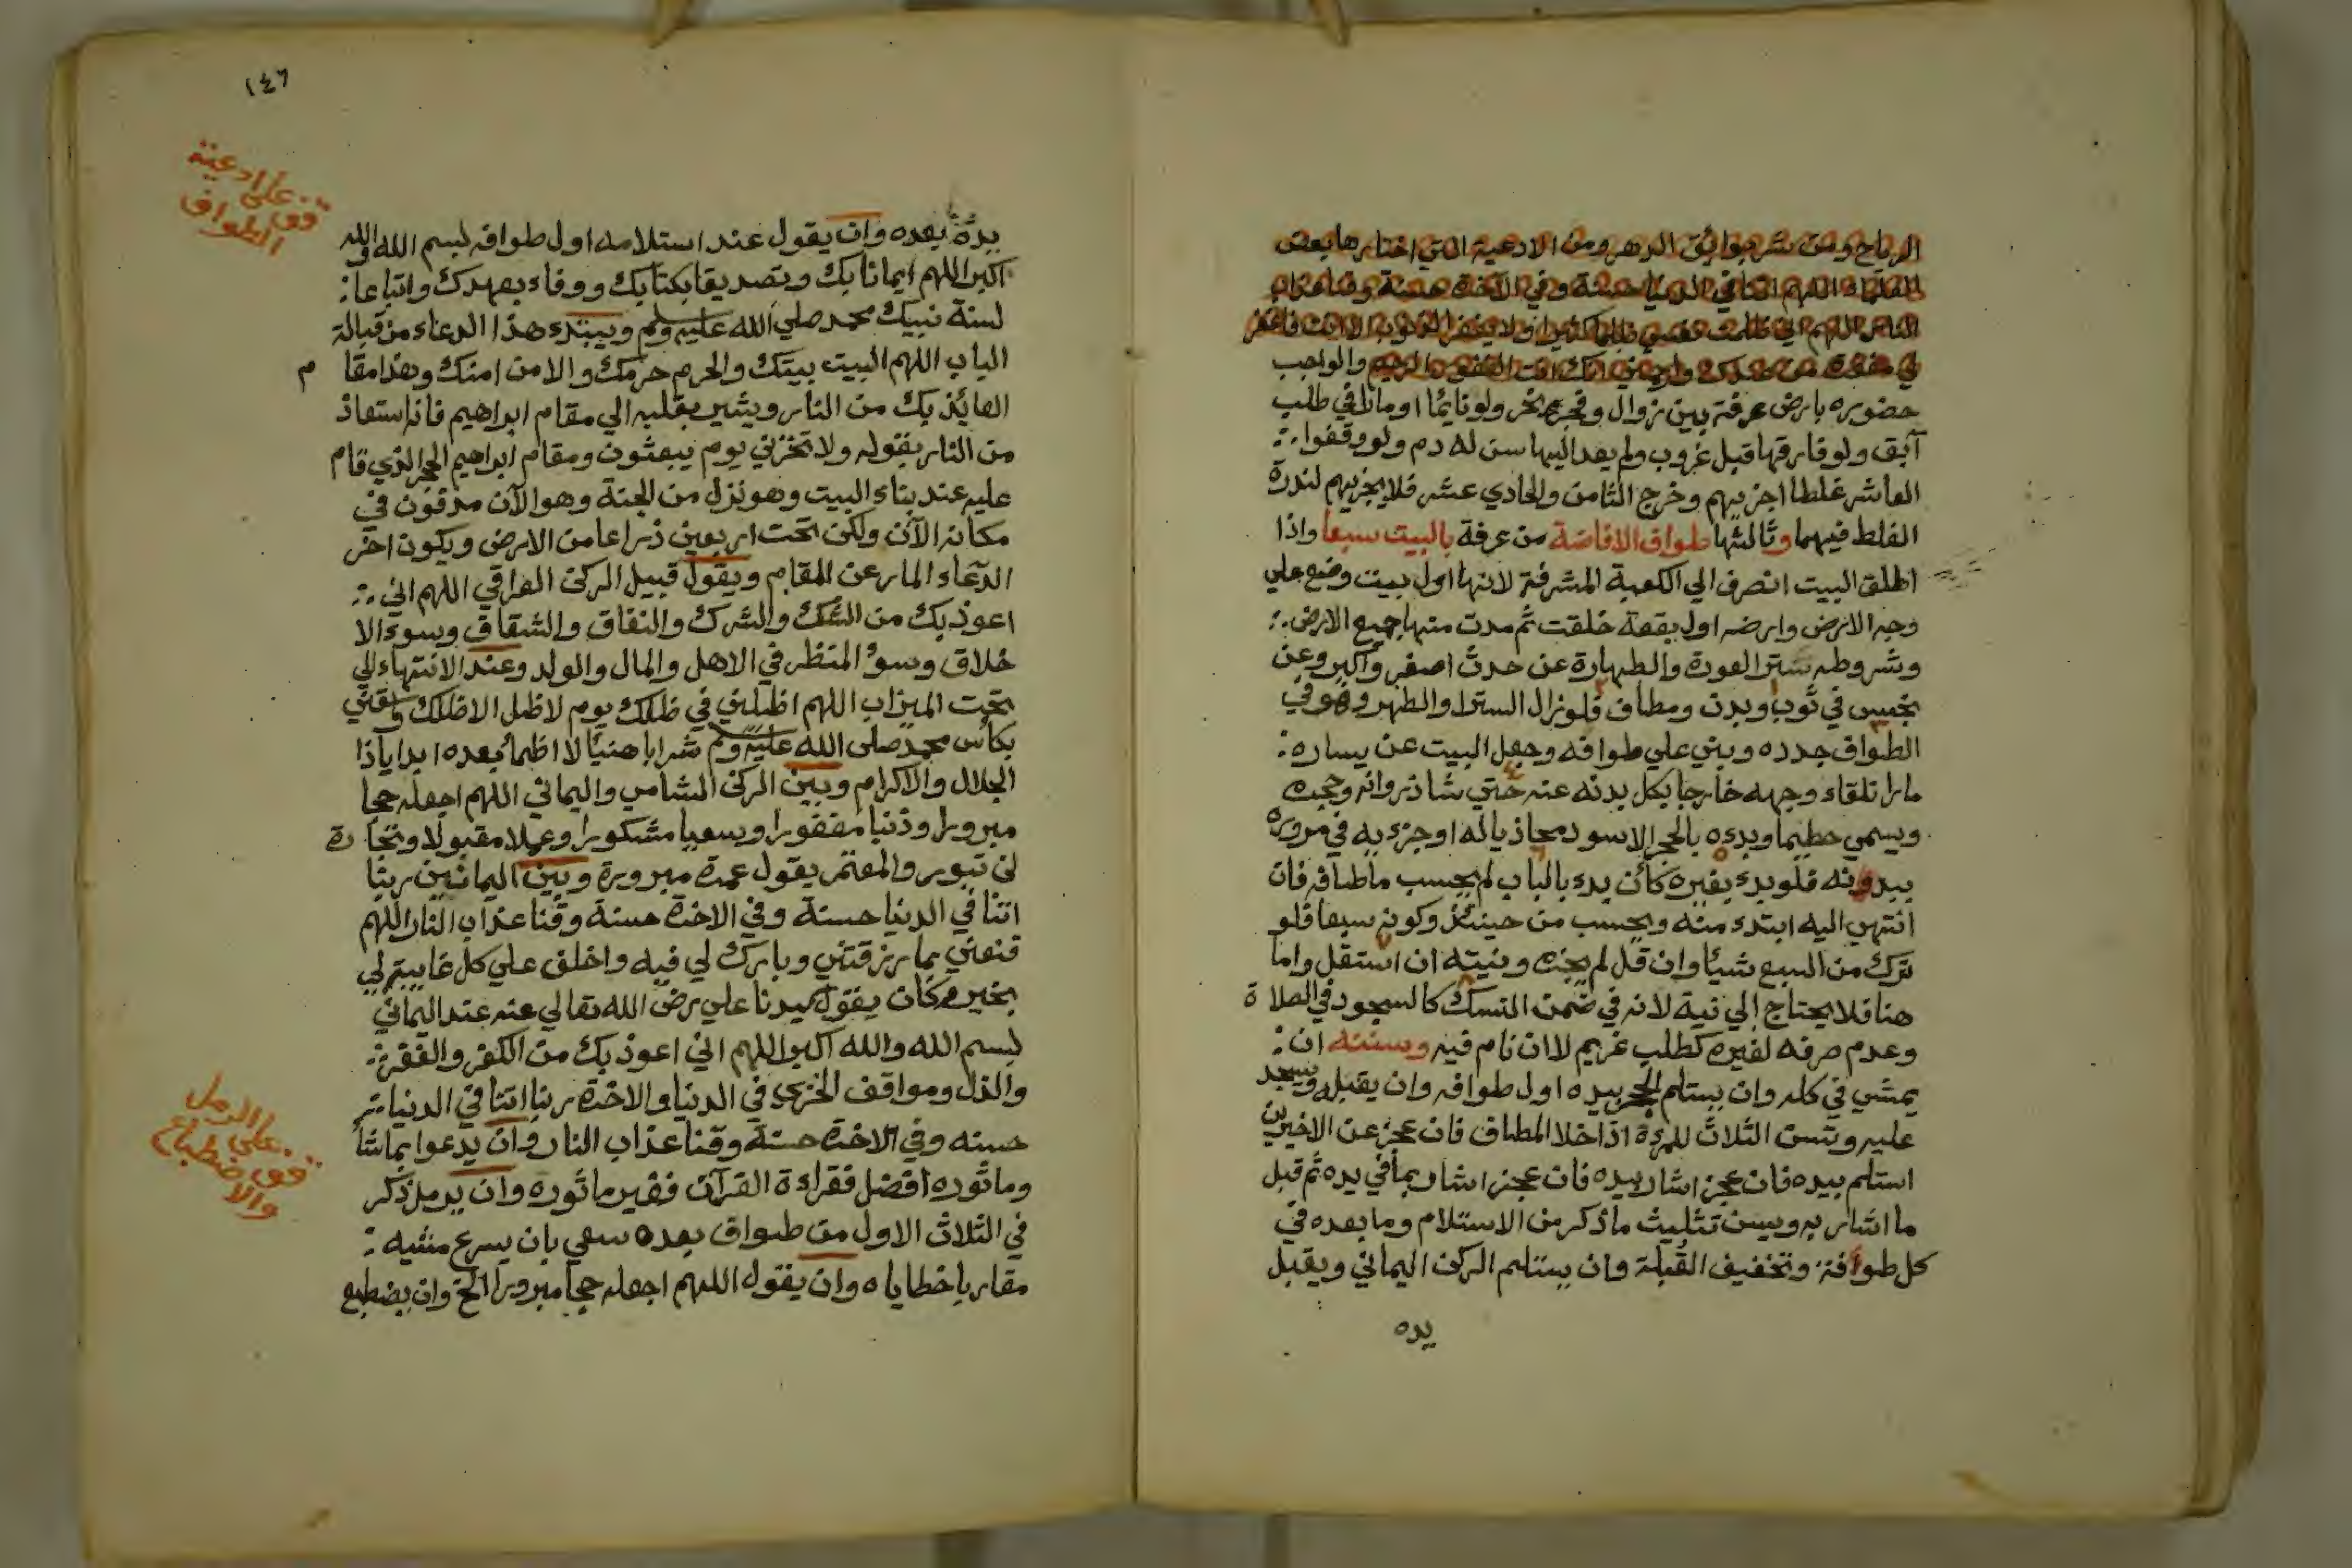 الرياح ومن شر بوائق الدهر ومن الادعية التي اختارها بعض
العلماء اللهم اتنا في الدنيا حسنة وفي الآخرة حسنة وقنا عذاب
النار اللهم اني ظلمت نفسي ظلما كثيرا ولا يغفر الذنوب الا انت فاغفر
لي مغفرة من عندك وارحمني انك انت الغفور الرحيم والواجب
حضوره بارض عرفة بين زوال وفجر نحر ولو نائما او مارا في طلب
آبق ولو فارقها قبل غروب ولم يعد اليها سن له دم ولو وقفوا
العاشر غلطا اجزيهم وخرج الثامن والحادي عشر فلا يجزيهم لندرة
الغلط فيهما وثالثها طواف الافاضة من عرفة بالبيت سبعا واذا
اطلق البيت انصرف الي الكعبة المشرفة لانها اول بيت وضع علي
وجه الارض وارضه اول بقعة خلقت ثم مدت منها جميع الارض
وشروطه ستر العورة والطهارة عن حدث اصغر واكبر وعن
نجس في ثوب وبدن ومطاف فلو زال الستر او الطهر وهو في
الطواف جدده وبني علي طوافه وجعل البيت عن يساره
مارا تلقاء وجهه خارجا بكل بدنه عنه حتي شاذروانه وحجره
ويسمي حطيما وبدءه بالحجر الاسود محاذيا له او جزءيه في مروره
ببدونه فلو بدء بغيره كأن بدء بالباب لم يحسب ما طافه فان
انتهي اليه ابتدء منه ويحسب من حينئذ وكونه سبعا فلو
ترك من السبع شيئا وان قل لم يجزه ونيته ان استقل واما
هنا فلا يحتاج الي نية لانه في ضمن النسك كالسجود في الصلاة
وعدم صرفه لغيره كطلب غريم لا ان نام فيه وسننه ان
يمشي في كله وان يستلم الحجر بيده اول طوافه وان يقبله ويسجد
عليه وتسن الثلاث للمرءة اذا خلا المطاف فان عجز عن الاخيرين
استلم بيده فان عجز اشار بيده فان عجز اشار بما في يده ثم قبل
ما اشار به ويسن تثليث ما ذكر من الاستلام وما بعده في
كل طوافة وتخفيف القبلة وان يستلم الركن اليماني ويقبل
يده
١٤٦
قف علي ادعية
الطواف
يده بعده وان يقول عند استلامه اول طوافه بسم الله والله
اكبر اللهم ايمانا بك وتصديقا بكتابك ووفاء بعهدك واتباعا
لسنة نبيك محمد صلي الله عليه وسلم ويبتدء هذا الدعاء من قبالة
الباب اللهم البيت بيتك والحرم حرمك والامن امنك وهذا مقام
العائذ بك من النار ويشير بقلبه الي مقام ابراهيم فانه استعاذ
من النار بقوله ولا تخزني يوم يبعثون ومقام ابراهيم الحجر الذي قام
عليه عند بناء البيت وهو نزل من الجنة وهو الآن مدفون في
مكانه الآن ولكن تحت اربعين ذراعا من الارض ويكون اخر
الدعاء المار عن المقام ويقول قبيل الركن العراقي اللهم اني
اعوذ بك من الشك والشرك والنفاق والشقاق وسوء الا
خلاق وسوء المنظر في الاهل والمال والولد وعند الانتهاء الي
تحت الميزاب اللهم اظلني في ظلك يوم لا ظل الا ظلك واسقني
بكأس محمد صلي الله عليه وسلم شرابا هنيئا لا اظمأ بعده ابدا ياذا
الجلال والاكرام وبين الركن الشامي واليماني اللهم اجعله حجا
مبرورا وذنبا مغفورا وسعيا مشكورا وعملا مقبولا وتجارة
لن تبور والمعتمر يقول عمرة مبرورة وبين اليمانيين ربنا
اتنا في الدنيا حسنة وفي الاخرة حسنة وقنا عذاب النار اللهم
قنعني بما رزقتني وبارك لي فيه واخلف علي كل غايبة لي
بخير وكان يقول سيدنا علي رضي الله تعالي عنه عند اليماني
بسم الله والله اكبر اللهم اني اعوذ بك من الكفر والفقر
والذل ومواقف الخزي في الدنيا والاخرة ربنا اتنا في الدنيا
حسنه وفي الاخرة حسنة وقنا عذاب النار وان يدعوا بما شاء
وماثوره افضل فقراءة القرآن فغير ماثوره وان يرمل ذكر
في الثلاث الاول من طواف بعده سعي بان يسرع مشيه
مقاربا خطاياه وان يقول اللهم اجعله حجا مبرورا الخ وان يضطبع
قف علي الرمل
والاضطباع